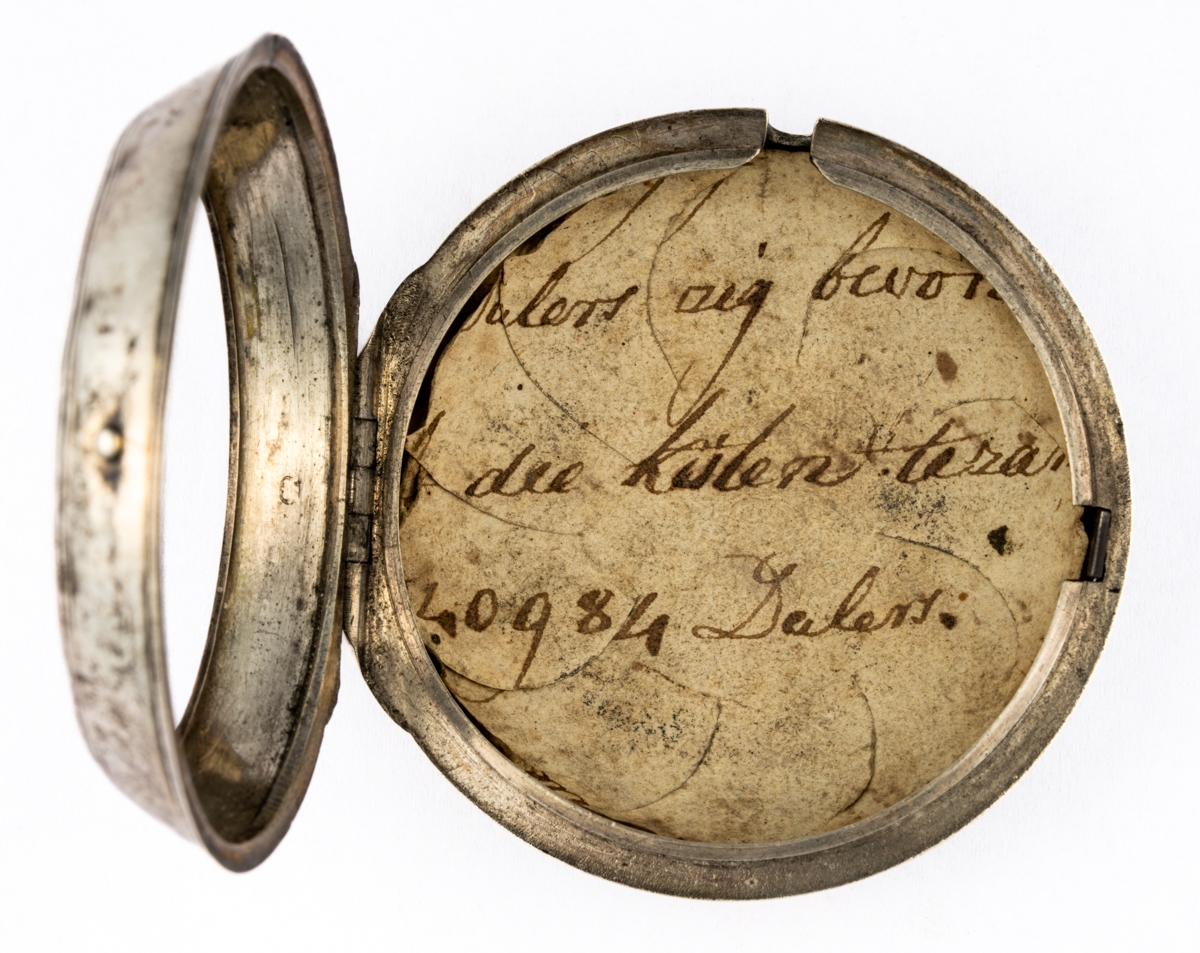 Dalers zig bevon
die kisten te zam
40984 Dalers.